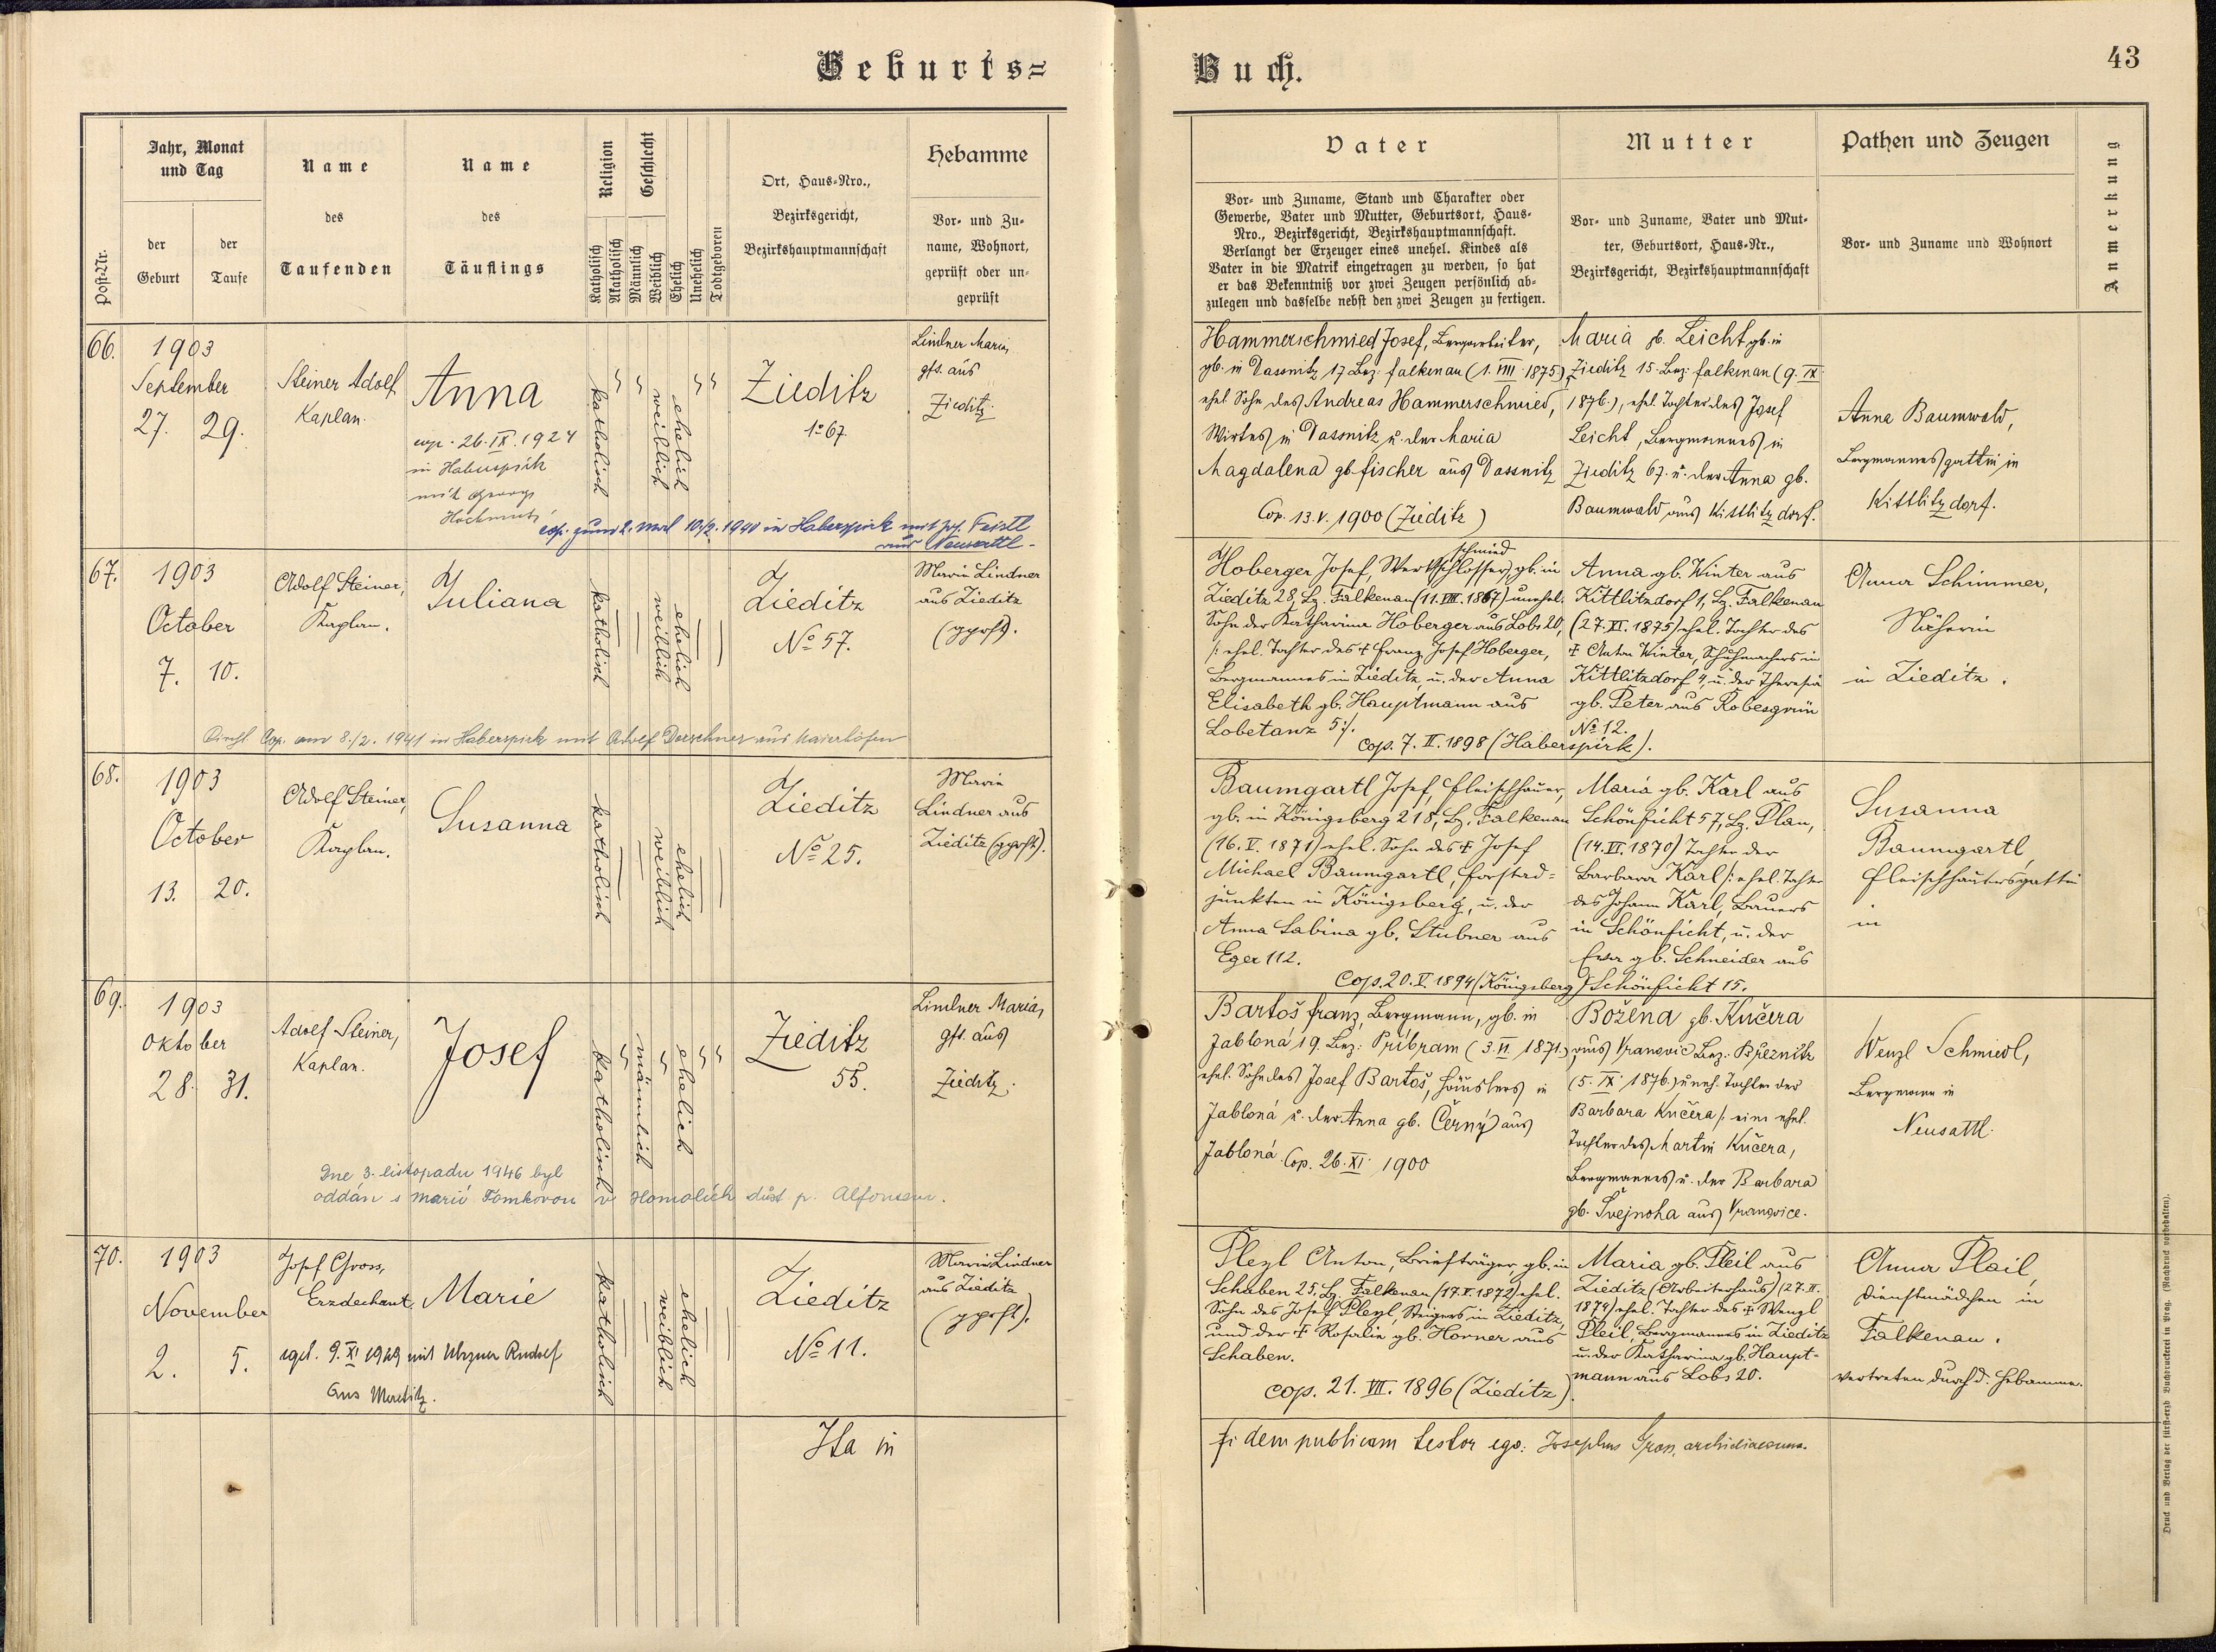 Geburts=
Buch.
43
Post-Nr.
Jahr, Monat
und Tag
der
Geburt
der
Taufe
Name
des
Taufenden
Name
des
Täuflings
Religion
Katholisch
Akatholisch
Geschlecht
Männlich
Weiblich
Ehelich
Unehelich
Todtgeboren
Ort, Haus-Nro.,
Bezirksgericht,
Bezirkshauptmannschaft
Hebamme
Vor- und Zu-
name, Wohnort,
geprüft oder un-
geprüft
Vater
Vor- und Zuname, Stand und Charakter oder
Gewerbe, Vater und Mutter, Geburtsort, Haus-
Nro., Bezirksgericht, Bezirkshauptmannschaft.
Verlangt der Erzeuger eines unehel. Kindes als
Vater in die Matrik eingetragen zu werden, so hat
er das Bekenntniß vor zwei Zeugen persönlich ab-
zulegen und dasselbe nebst den zwei Zeugen zu fertigen.
Mutter
Vor- und Zuname, Vater und Mut-
ter, Geburtsort, Haus-Nr.,
Bezirksgericht, Bezirkshauptmannschaft
Pathen und Zeugen
Vor- und Zuname und Wohnort
Anmerkung
66.
1903
September
27. 29.
Steiner Adolf
Kaplan.
Anna
cop. 26.IX.1924
in Haberspirk
mit Georg
cop. zum 2. mal 10./2. 1940 in Haberspirk mit Jos. Feistl
aus Neusattl.
katholisch
weiblich
ehelich
Zieditz
67.
Lindner Maria,
gft. aus
Zieditz.
Hammerschmied Josef, Bergarbeiter,
gb. in Dassnitz 17 Bez: Falkenau (1. VIII. 1875)
ehel. Sohn des Andreas Hammerschmied,
Wirtes in Dassnitz u. der Maria
Magdalena gb. Fischer aus Dassnitz
Cop. 13.V. 1900 (Zieditz)
Maria gb. Leicht gb. in
Zieditz 15. Bez: Falkenau (9. IX
1876.), ehel. Tochter des Josef
Leicht, Bergmannes in
Zieditz 67. u. der Anna gb.
Baumwald aus Kittlitzdorf.
Anna Baumwald,
Bergmannesgattin in
Kittlitzdorf.
67.
1903
October
7. 10.
Adolf Steiner,
Kaplan.
Juliana
Cop. am 8./2. 1941 in Haberspirk mit Adolf Derschner aus Maierhöfen
katholisch
weiblich
ehelich
Zieditz
No 57.
Maria Lindner
aus Zieditz
(gprft).
schmied
Hoberger Josef, Werkschlosser, gb. in
Zieditz 28, Bz. Falkenau (11.VIII.1867) unehel.
Sohn der Katharina Hoberger aus Lobs 20,
/: ehel. Tochter des † Franz Josef Hoberger,
Bergmannes in Zieditz, u. der Anna
Elisabeth gb. Hauptmann aus
Lobetanz 5:/.
Cop. 7. II. 1898 (Haberspirk).
Anna gb. Winter aus
Kittlitzdorf 1, Bz. Falkenau
(27.XI.1875) ehel. Tochter des
† Anton Winter, Schuhmachers in
Kittlitzdorf 4, u. der Theresia
gb. Peter aus Robesgrün
No 12.
Anna Schimmer,
Näherin
in Zieditz.
68.
1903
October
13. 20.
Adolf Steiner,
Kaplan.
Susanna
katholisch
weiblich
ehelich
Zieditz
No 25.
Maria
Lindner aus
Zieditz (gprft).
Baumgartl Josef, Fleischhauer,
gb. in Königsberg 218, Bz. Falkenau
(16. V. 1871) ehel. Sohn des † Josef
Michael Baumgartl, Forstad=
junkten in Königsberg, u. der
Anna Sabina gb. Stubner aus
Eger 112.
Cop. 20.V. 1894 (Königsberg)
Maria gb. Karl aus
Schönficht 57, Bz. Plan,
(14.VI.1870) Tochter der
Barbara Karl /: ehel. Tochter
des Johann Karl, Bauers
in Schönficht, u. der
Eva gb. Schneider aus
Schönficht 15.
Susanna
Baumgartl
Fleischhauersgattin
in
69.
1903
Oktober
28. 31.
Adolf Steiner,
Kaplan.
Josef
Dne 3. listopadu 1946 byl
oddán s Marií Tomkovou v Homolích
katholisch
männlich
ehelich
Zieditz
55.
Lindner Maria,
gft. aus
Zieditz.
Bartoš Franz, Bergmann, gb. in
Jabloná 19. Bez: Příbram (3. II 1871.)
ehel. Sohn des Josef Bartoš, Häuslers in
Jabloná u. der Anna gb. Černý aus
Jabloná
Cop. 26. XI. 1900
Božena gb. Kučera
aus Vranovic Bez: Březnitz
(5. IX. 1876.) uneh. Tochter der
Barbara Kučera /: ehel.
Tochter des Martin Kučera,
Bergmannes u. der Barbara
gb. Švejnoha aus Vranovice.
Wenzl Schmiedl,
Bergmann in
Neusattl.
70.
1903
November
2. 5.
Josef Gross,
Erzdechant.
Marie
9. XI 1929 mit Rudolf
aus
katholisch
weiblich
ehelich
Zieditz
No 11.
Maria Lindner
aus Zieditz
(gprft).
Pleyl Anton, Briefträger, gb. in
Schaben 25, Bz. Falkenau (17.V.1872) ehel.
Sohn des Josef Pleyl, Steigers in Zieditz,
und der † Rosalia gb. Horner aus
Schaben.
Cop. 21. VII. 1896 (Zieditz).
Maria gb. Pleil aus
Zieditz (Arbeiterhaus) (27.II.
1874) ehel. Tochter des † Wenzl
Pleil, Bergmannes in Zieditz
u. der Katharina gb. Haupt=
mann aus Lobs 20.
Anna Pleil,
Dienstmädchen in
Falkenau.
vertreten durch d. Hebamme.
Ita in
fidem publicam testor ego: Josephus Gross, archidiaconus.
Druck und Verlag der fürst-erzb. Buchdruckerei in Prag. (Nachdruck vorbehalten).